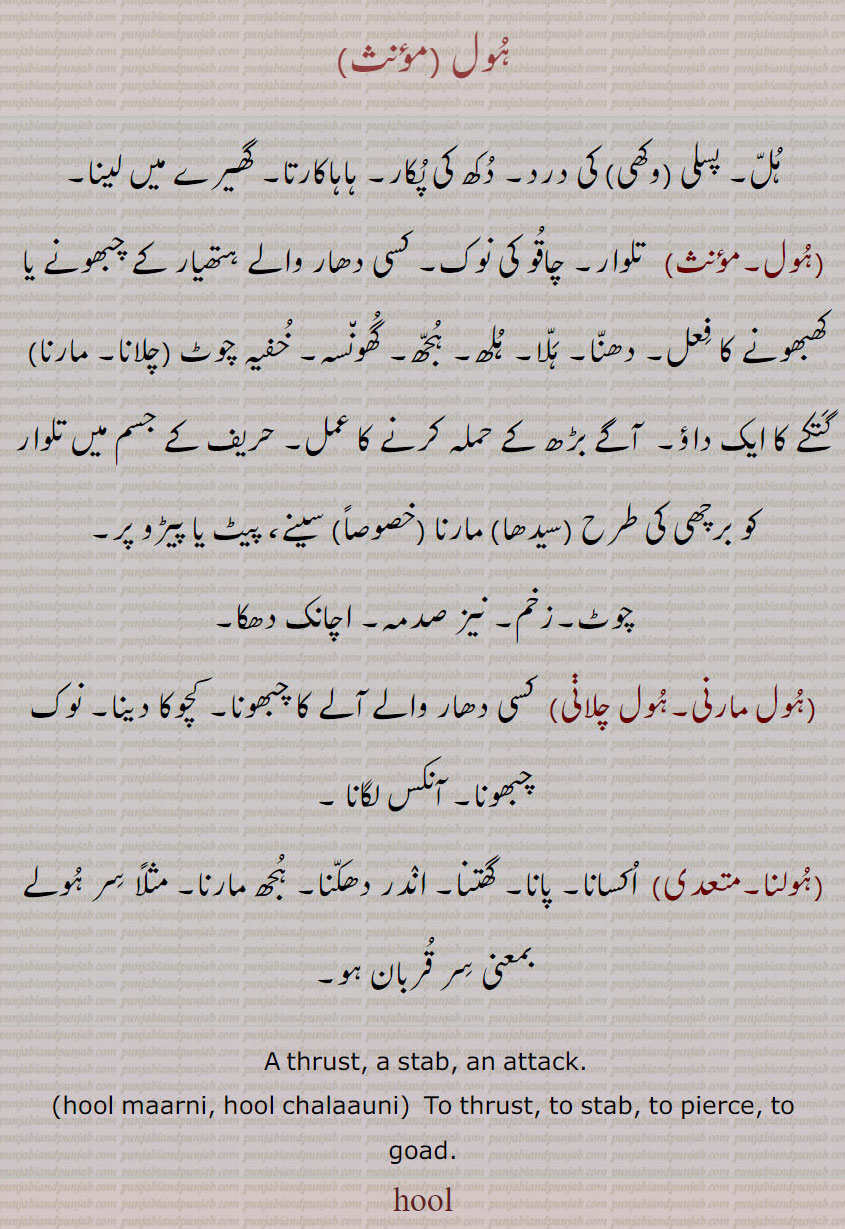 ہُول (مؤنث)
ہُلّ۔ پسلی (وکھی) کی درد۔ دُکھ کی پُکار۔ ہاہاکارتا۔ گھیرے میں لینا۔
(ہُول۔مؤنث) تلوار۔ چاقُو کی نوک۔ کسی دھار والے ہتھیار کے چبھونے یا
کھبھونے کا فِعل۔ دھنّا۔ ہَلّا۔ ہُلھ۔ ہُجھّ۔ گُھونّسہ۔ خُفیہ چوٹ (چلانا۔ مارنا)
گَتکے کا ایک داؤ۔ آگے بڑھ کے حملہ کرنے کا عمل۔ حریف کے جسم میں تلوار
کو برچھی کی طرح (سیدھا) مارنا (خصوصاً) سینے، پیٹ یا پیڑو پر۔
چوٹ۔زخم۔ نیز صدمہ۔ اچانک دھکا۔
(ہُول مارنی۔ہُول چلانٛی) کسی دھار والے آلے کا چبھونا۔ کچوکا دینا۔ نوک
چبھونا۔ آنکس لگانا ۔
(ہُولنا۔متعدی) اُکسانا۔ پانا۔ گھتنا۔ انٛدر دھکّنا۔ ہُجھ مارنا۔ مثلًا سِر ہُولے
بمعنی سِر قُربان ہو۔
A thrust, a stab, an attack.
(hool maarni, hool chalaauni) To thrust, to stab, to pierce, to
goad.
hool